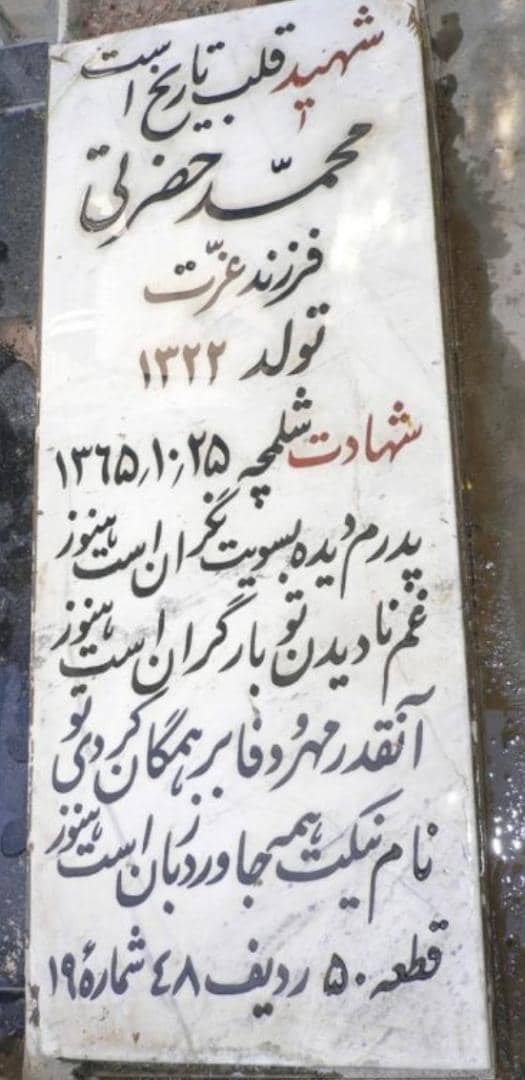 شهید قلب تاریخ است
محمّد حضرتی
فرزند عزّت
تولد ۱۳۲۲
شهادت شلمچه ۱۳۶۵٫۱۰٫۲۵
پدرم دیده بسویت نگران است هنوز
غم نادیدن تو بار گران است هنوز
آنقدر مهر و وفا بر همگان کردی تو
نام نیکت همه جا ورد زبان است هنوز
قطعه ۵۰ ردیف ۴۸ شمارهٔ ۱۹